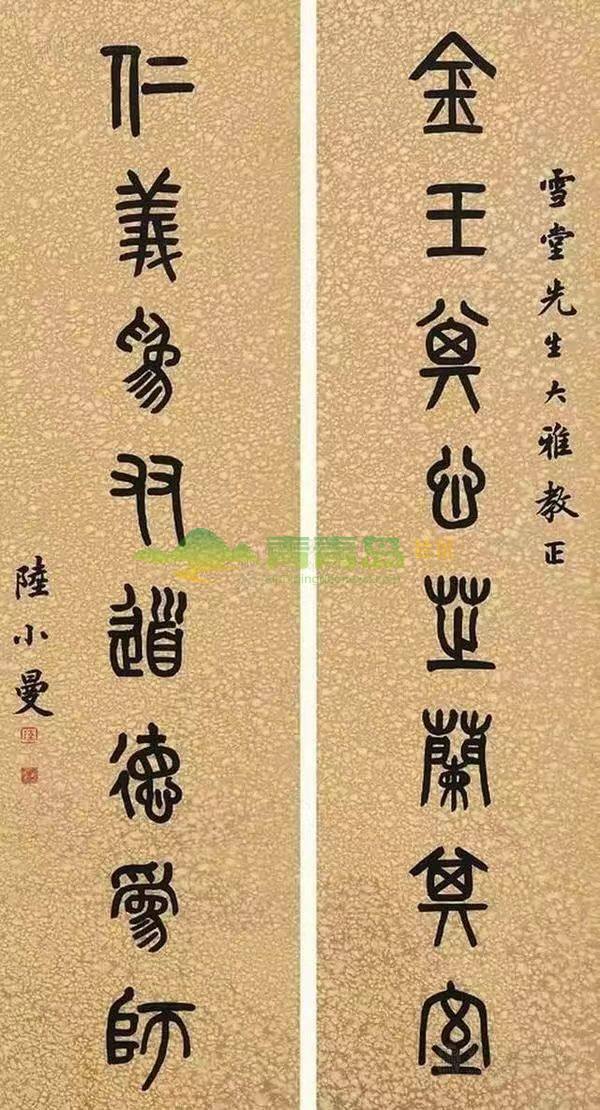 雪堂先生大雅教正
金玉其心芝蘭其室
仁義爲友道德爲師
陸小曼
青青岛社区